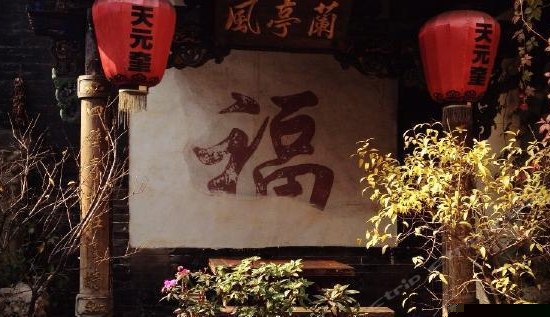 風亭蘭
天元奎
福
天元奎